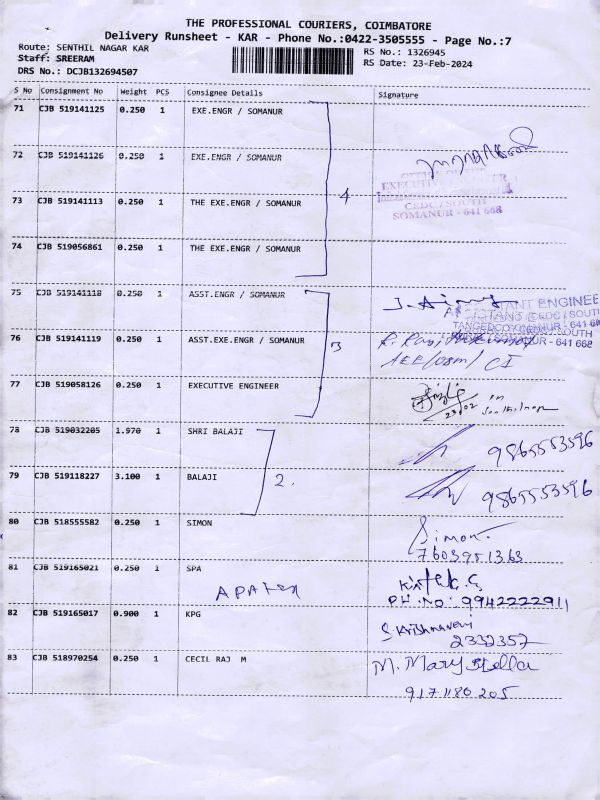 THE PROFESSIONAL COURIERS, COIMBATORE
Delivery Runsheet - KAR - Phone No.:0422-3505555 - Page No.:7
Route: SENTHIL NAGAR KAR RS No.: 1326945
Staff: SREERAM RS Date: 23-Feb-2024
DRS No.: DCJB132694507
S No Consignment No Weight PCS Consignee Details Signature
71 CJB 519141125 0.250 1 EXE.ENGR / SOMANUR
72 CJB 519141126 0.250 1 EXE.ENGR / SOMANUR
EXECUTIVE ENGINEER
73 CJB 519141113 0.250 1 THE EXE.ENGR / SOMANUR 4
CEDC / SOUTH
SOMANUR - 641 668
74 CJB 519056861 0.250 1 THE EXE.ENGR / SOMANUR
75 CJB 519141118 0.250 1 ASST.ENGR / SOMANUR
76 CJB 519141119 0.250 1 ASST.EXE.ENGR / SOMANUR 3
AEE/O&M/
77 CJB 519058126 0.250 1 EXECUTIVE ENGINEER
23/02
78 CJB 519032205 1.970 1 SHRI BALAJI
9865553596
79 CJB 519118227 3.100 1 BALAJI 2.
9865553596
80 CJB 518555582 0.250 1 SIMON Simon.
7603951363
81 CJB 519165021 0.250 1 SPA
PH: NO: 9942222911
82 CJB 519165017 0.900 1 KPG S. Krishnaveni
2332357
83 CJB 518970254 0.250 1 CECIL RAJ M M. Mary Stella
9171186205